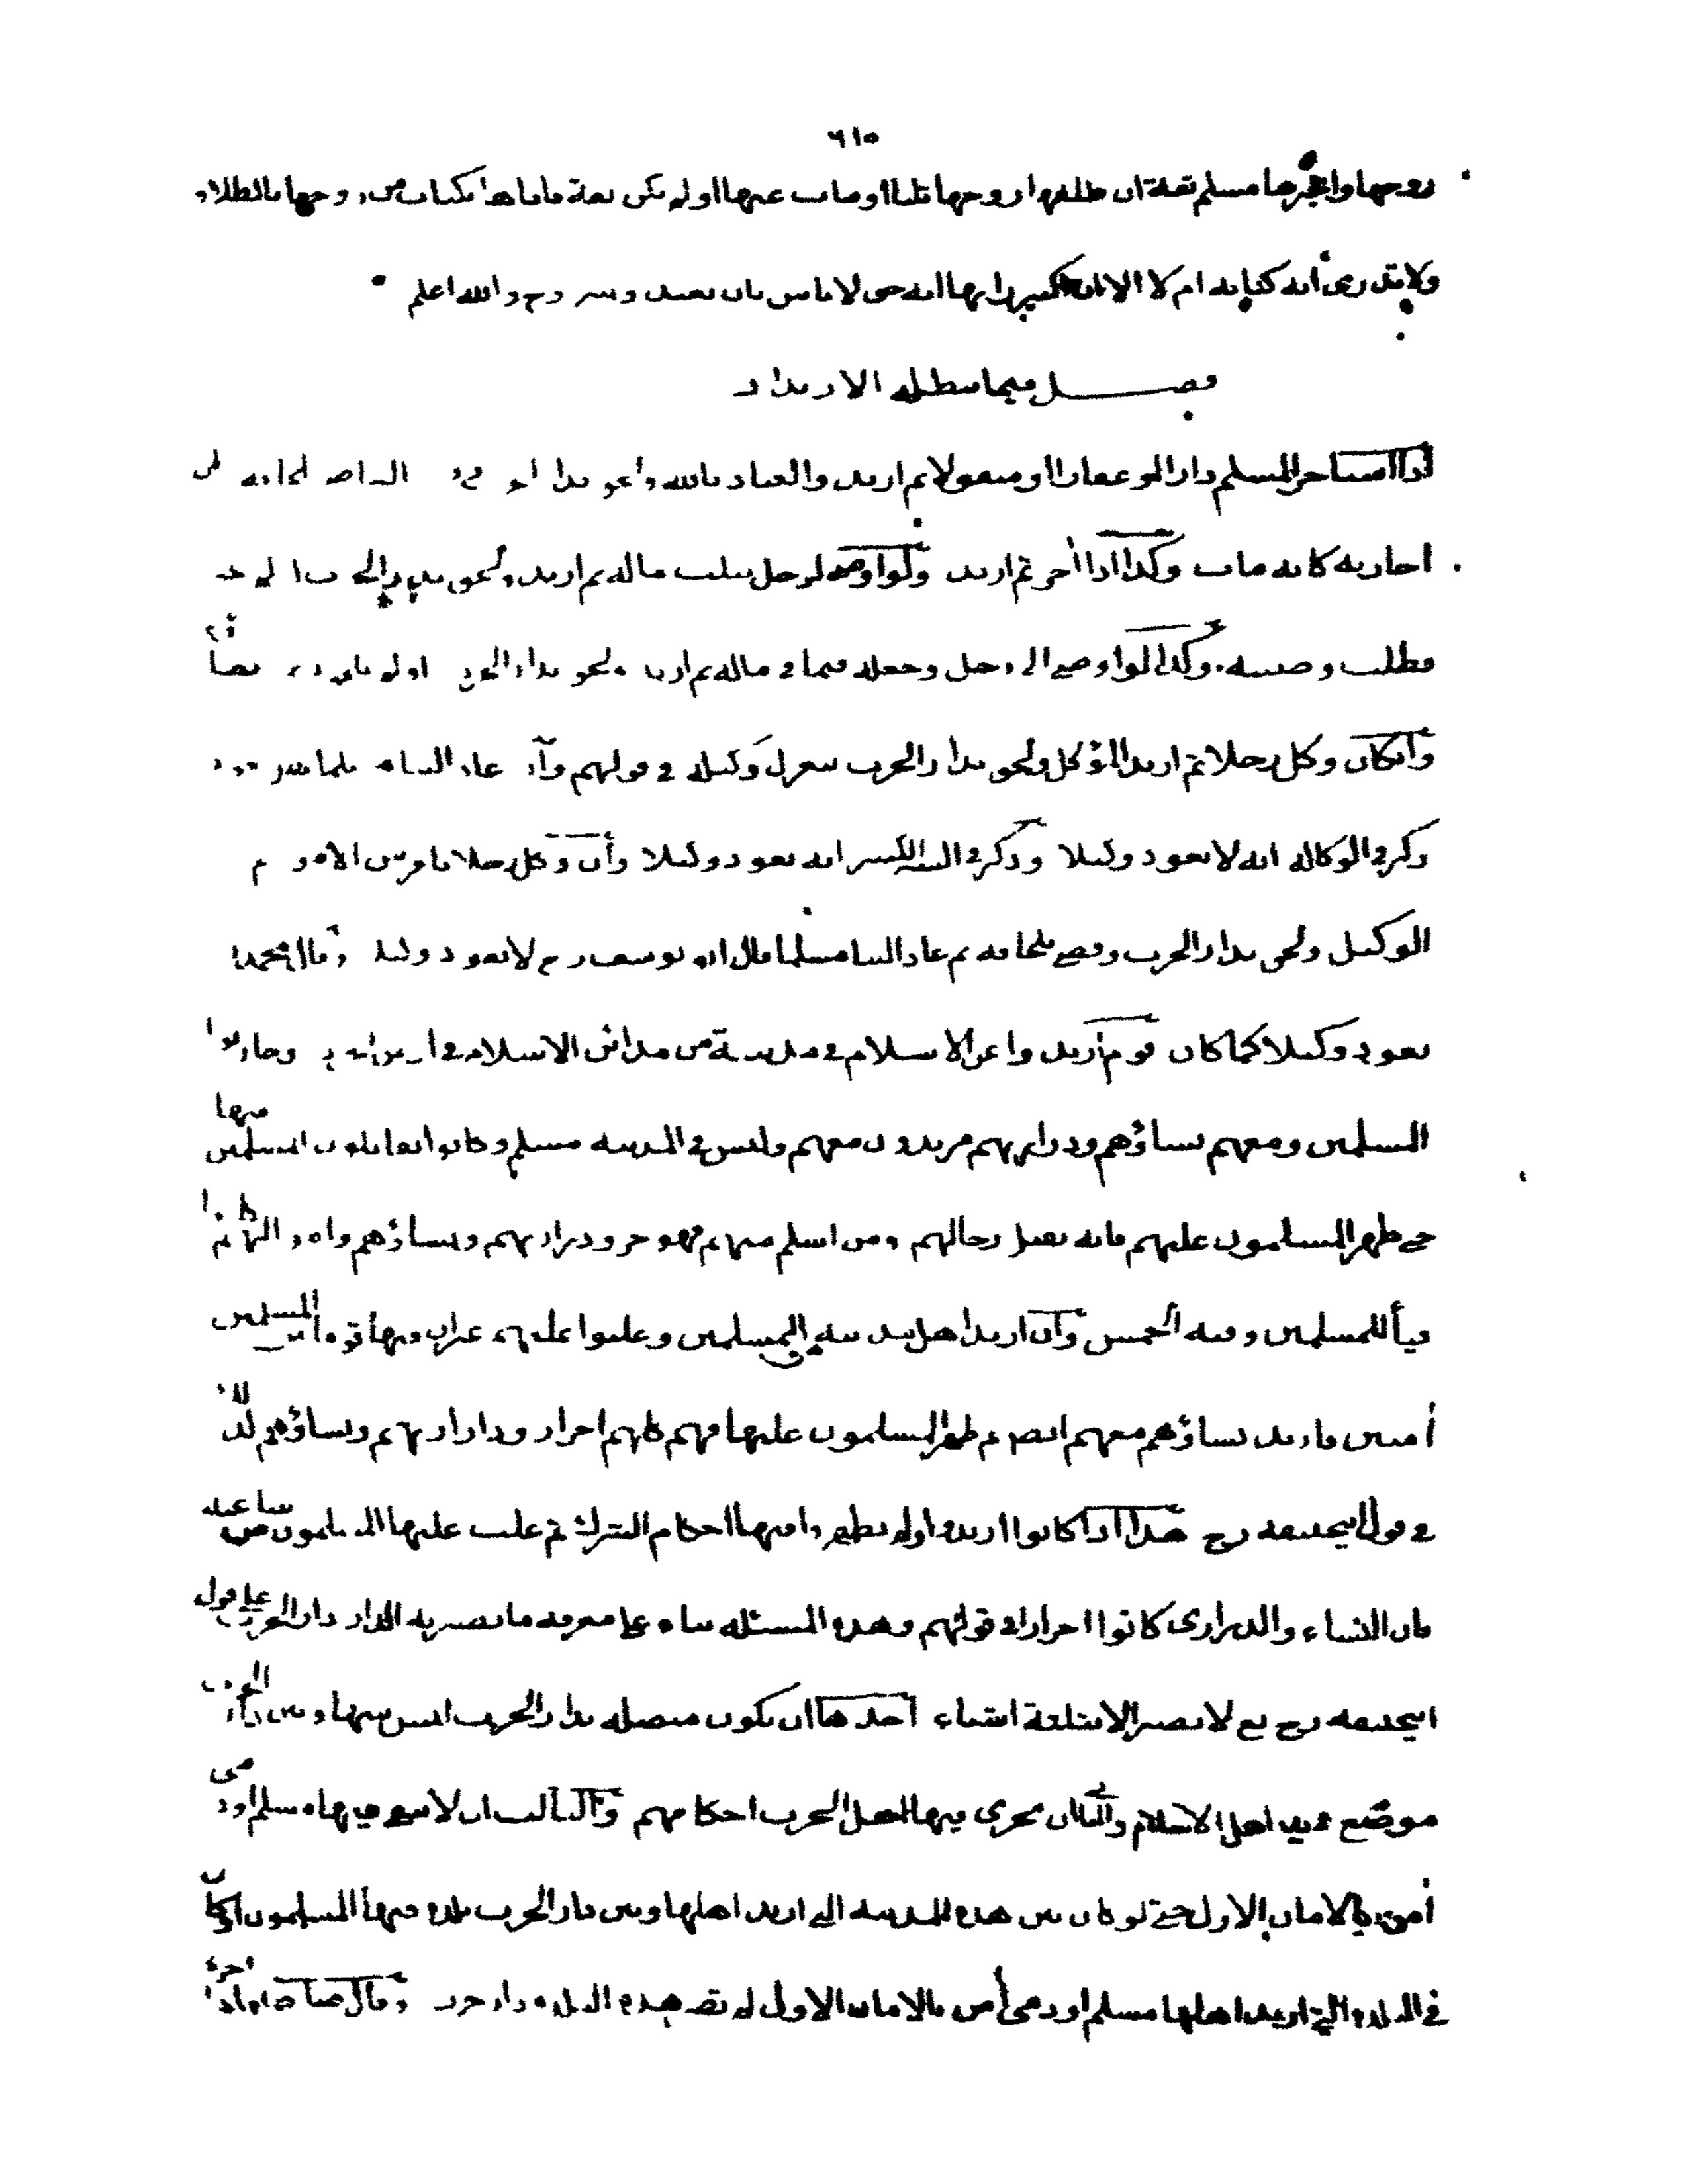 ٦١٥
زوجها واخبرها مسلم ثقة ان طلقها زوجها ثلثا او مات عنها او لم يكن ثقة فاتاها بكتاب من زوجها بالطلاق
ولا تدرى انه كتابه ام لا الا ان اكبر رايها انه حق لا باس بان تعتد و تزوج والله اعلم
فصل فيما يبطله الارتداد
اذا اجر المسلم دارا او عقارا او منقولا ثم ارتد والعياذ بالله
اجارته كانه مات وكذا اذا اجر ثم ارتد ولو اوصى لرجل بثلث ماله ثم ارتد ولحق بدار الحرب او لم
بطلت وصيته وكذا لو اوصى الى رجل وجعله قيما فى ماله ثم ارتد ولحق بدار الحرب او لم
وان كان وكل رجلا ثم ارتد الموكل ولحق بدار الحرب ينعزل وكيله فى قولهم وان عاد الينا مسلما
ذكر فى الوكالة انه لا يعود وكيلا وذكر فى السير الكبير انه يعود وكيلا وان وكل رجلا
الوكيل ولحق بدار الحرب وقضى بلحاقه ثم عاد الينا مسلما قال ابو يوسف رح لا يعود وكيلا وقال محمد
يعود وكيلا كما كان قوم ارتدوا عن الاسلام فى مدينة من مدائن الاسلام فى وحاربوا
المسلمين ومعهم نساؤهم وذراريهم مرتدون معهم وليس فى المدينة مسلم وكانوا يقاتلون المسلمين منها
حتى ظهر المسلمون عليهم فانه يقتل رجالهم ومن اسلم منهم فهو حر وذراريهم ونساؤهم واموالهم
فيأ للمسلمين وفيه الخمس وان ارتد اهل مدينة المسلمين وغلبوا عليها غير ان فيها قوما من المسلمين
أمنين وارتد نساؤهم معهم ايضا ثم ظهر المسلمون عليها فهم كلهم احرار وذراريهم ونساؤهم كذلك
فى قول ابيحنيفة رح هذا اذا كانوا ارتدوا ولم يظهروا فيها احكام الشرك ثم غلب عليها المسلمون من ساعته
فان النساء والذرارى كانوا احرارا فى قولهم وهذه المسئلة بناء على معرفة ما تصير به الدار دار الحرب على قول
ابيحنيفة رح لا تصير الا بثلثة اشياء احدها ان يكون متصلة بدار الحرب ليس بينها وبين دار الحرب
موضع فى يد اهل الاسلام والثانى ان يجرى فيها اهل الحرب احكامهم والثالث ان لا يبقى فيها مسلم او ذمى
أمن بالامان الاول حتى لو كان بين هذه المدينة التى ارتد اهلها وبين دار الحرب بلدة فيها المسلمون او كان
فى البلدة التى ارتد اهلها مسلم او ذمى أمن بالامان الاول لم تصر هذه البلدة دار حرب وقال صاحباه اذا